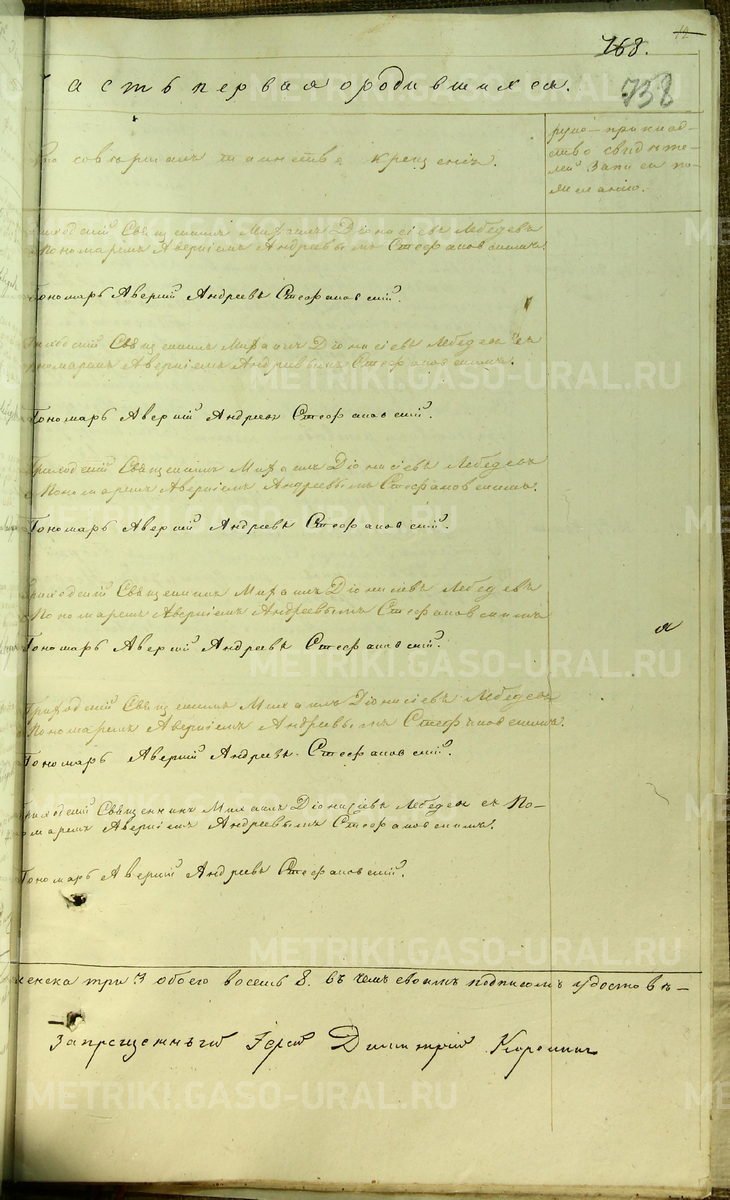 12
768.
738
асть первая о родившихся.
Кто совершалъ таинство крещенія.
руко-приклад-
ство свидѣте-
лей записи по
желанію.
Приходскій Священникъ Михаилъ Діонисіевъ Лебедевъ
Пономаремъ Аверкіемъ Андреевымъ Стефановскимъ.
Пономарь Аверкій Андреевъ Стефановскій.
Приходскій Священникъ Михаилъ Діонисіевъ Лебедевъ съ
Пономаремъ Аверкіемъ Андреевымъ Стефановскимъ.
Пономарь Аверкій Андреевъ Стефановскій.
Приходскій Священникъ Михаилъ Діонисіевъ Лебедевъ
Пономаремъ Аверкіемъ Андреевымъ Стефановскимъ.
Пономарь Аверкій Андреевъ Стефановскій.
Приходскій Священникъ Михаилъ Діонисіевъ Лебедевъ
Пономаремъ Аверкіемъ Андреевымъ Стефановскимъ
Пономарь Аверкій Андреевъ Стефановскій.
Приходскій Священникъ Михаилъ Діонисіевъ Лебедевъ
Пономаремъ Аверкіемъ Андреевымъ Стефановскимъ.
Пономарь Аверкій Андреевъ Стефановскій.
Приходскій Священникъ Михаилъ Діонисіевъ Лебедевъ съ По-
номаремъ Аверкіемъ Андреевымъ Стефановскимъ.
Пономарь Аверкій Андреевъ Стефановскій.
женска три 3 обоего восемь 8. въ чемъ своимъ подписомъ удостовѣ-
Запрещенный Іерей Димитрій
METRIKI.GASO-URAL.RU